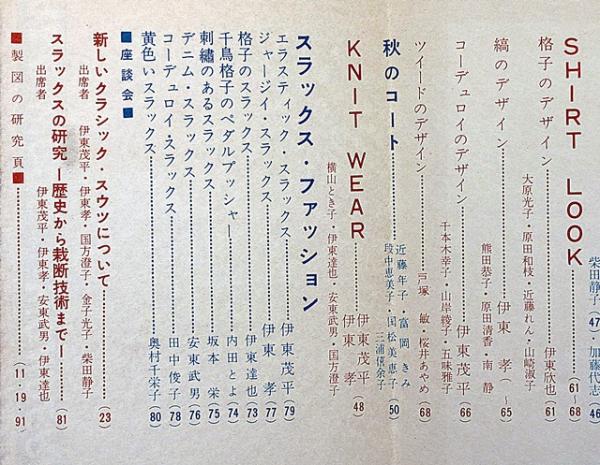 柴田静子(47)・加藤代志 46
SHIRT LOOK 61〜68
格子のデザイン 伊東欣也(61)
大原光子・原田和枝・近藤れん・山崎淑子
縞のデザイン 伊東孝〜65
熊田恭子・原田清香・南静
コーデュロイのデザイン 伊東茂平(66)
千本木幸子・山岸綾子・五味雅子
ツイードのデザイン 戸塚敏・桜井あやめ(68)
秋のコート 近藤年子 富岡きみ(50)
段中恵美子・国松美恵子 三浦優余子
KNIT WEAR 伊東茂平 伊東孝(48)
横山とき子・伊東達也・安東武男・国方澄子
スラックス・ファッション
エラスティック・スラックス 伊東茂平(79)
ジャージイ・スラックス 伊東孝(77)
格子のスラックス 伊東達也(73)
千鳥格子のペダルプッシャー 内田とよ(74)
刺繡のあるスラックス 坂本栄(75)
デニム・スラックス 安東武男(76)
コーデュロイ・スラックス 田中俊子(78)
黄色いスラックス 奥村千栄子(80)
■座談会■
新しいクラシック・スウツについて(23)
出席者 伊東茂平・伊東孝・国方澄子・金子光子・柴田静子
スラックスの研究ー歴史から裁断技術までー(81)
出席者 伊東茂平・伊東孝・安東武男・伊東達也
■製図の研究頁■(11・19・91)